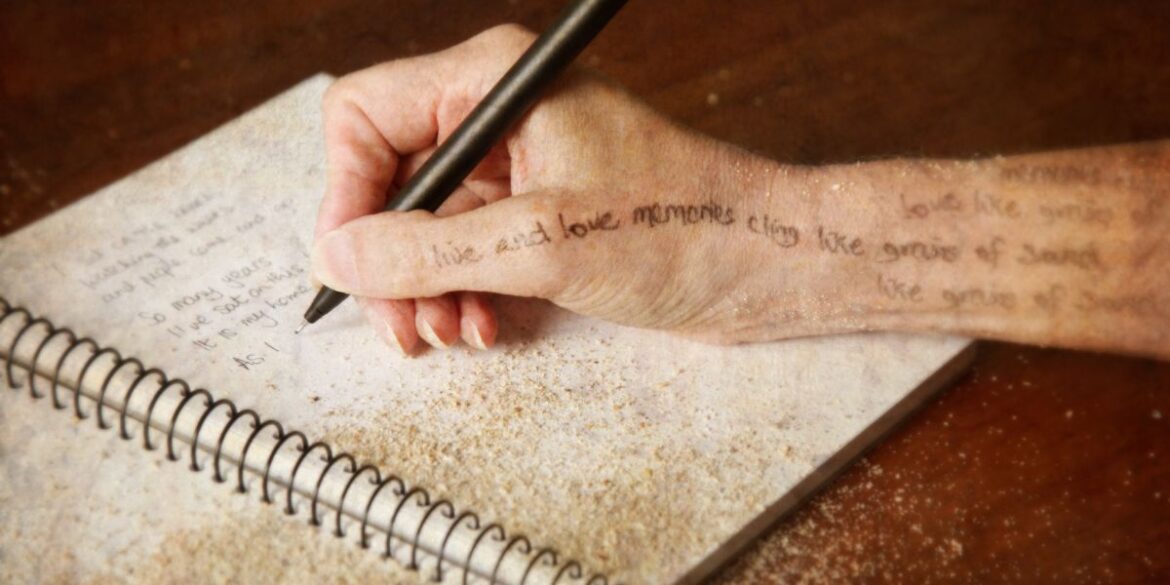 watching the waves
and people come and go
So many years
I've sat on this
It is my home
As I
live and love memories cling like grains of sand
memories
love like grains of
like grains of sand